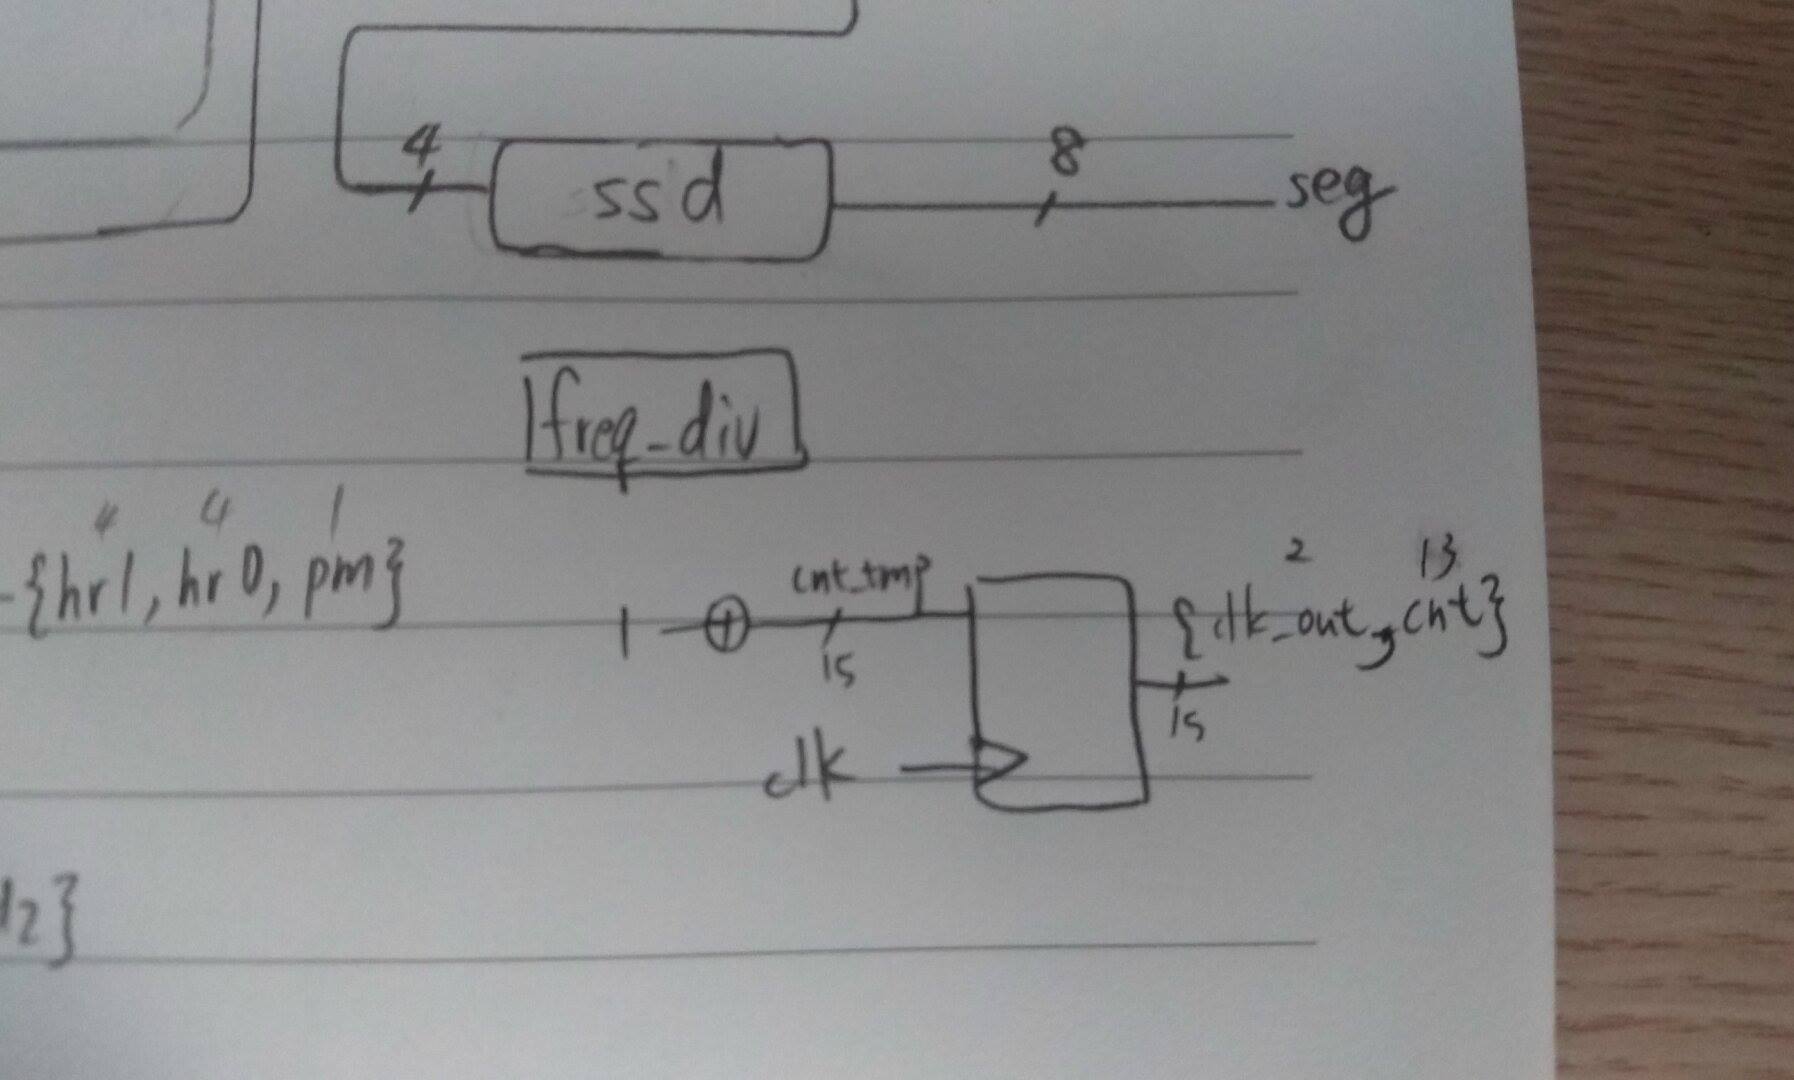 4
8
ssd
seg
freq_div
4 4 1
{hr1, hr0, pm}
cnt_tmp
2 13
{clk_out, cnt}
1
15
15
clk
2}